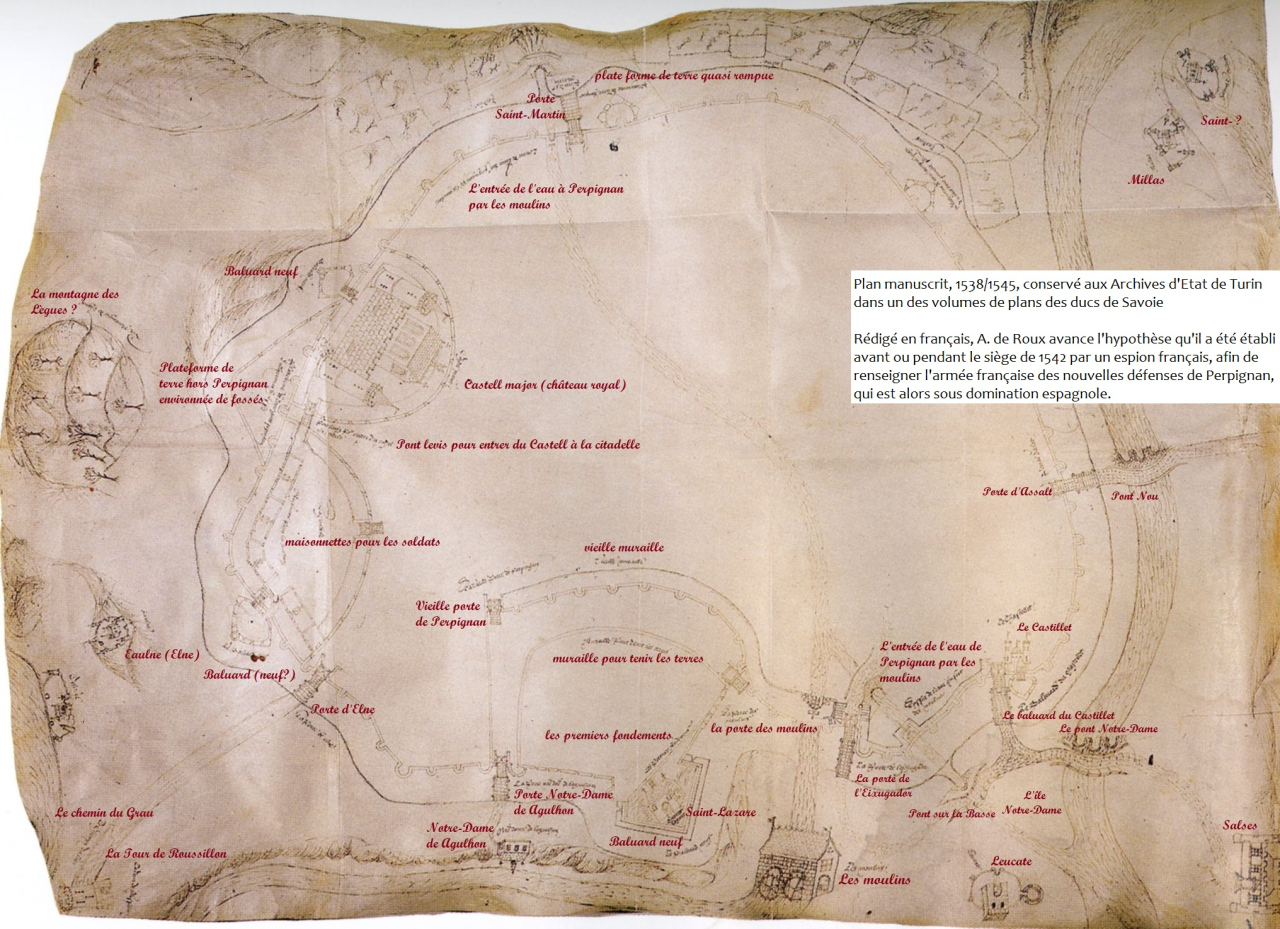 plate forme de terre quasi rompue
Porte
Saint-Martin
Saint- ?
Millas
L'entrée de l'eau à Perpignan
par les moulins
Baluard neuf
La montagne des
Lègues ?
Plan manuscrit, 1538/1545, conservé aux Archives d'Etat de Turin
dans un des volumes de plans des ducs de Savoie
Rédigé en français, A. de Roux avance l'hypothèse qu'il a été établi
avant ou pendant le siège de 1542 par un espion français, afin de
renseigner l'armée française des nouvelles défenses de Perpignan,
qui est alors sous domination espagnole.
Plateforme de
terre hors Perpignan
environnée de fossés
Castell major (château royal)
Pont levis pour entrer du Castell à la citadelle
Porte d'Assalt
Pont Nou
maisonnettes pour les soldats
vieille muraille
Vieille porte
de Perpignan
Le Castillet
Eaulne (Elne)
muraille pour tenir les terres
L'entrée de l'eau de
Perpignan par les
moulins
Baluard (neuf?)
Porte d'Elne
Le baluard du Castillet
Le pont Notre-Dame
les premiers fondements
la porte des moulins
La porte de
l'Eixugador
Porte Notre-Dame
de Agulhon
L'île
Notre-Dame
Pont sur la Basse
Saint-Lazare
Le chemin du Grau
Notre-Dame
de Agulhon
Baluard neuf
Salses
La Tour de Roussillon
Leucate
Les moulins